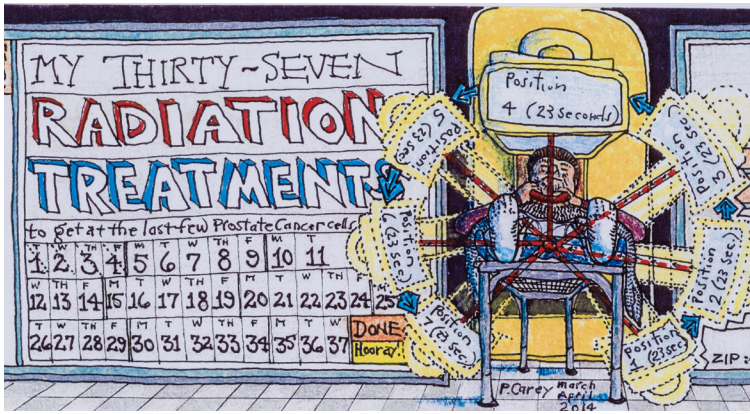 MY THIRTY-SEVEN
RADIATION
TREATMENTS
to get at the last few Prostate Cancer cells
T W TH F M T W TH F M T
1 2 3 4 5 6 7 8 9 10 11
W TH F M T W TH F M T W TH F M
12 13 14 15 16 17 18 19 20 21 22 23 24 25
T W TH F M T W TH F M T W
26 27 28 29 30 31 32 33 34 35 36 37
DONE
Hooray!
Position
1 (23 sec)
Position
2 (23 sec)
Position
3 (23 sec)
Position
4 (23 seconds)
Position
5 (23 sec)
Position
6 (23 sec)
Position
7 (23 sec)
P. Carey march
April
2014
ZIP: